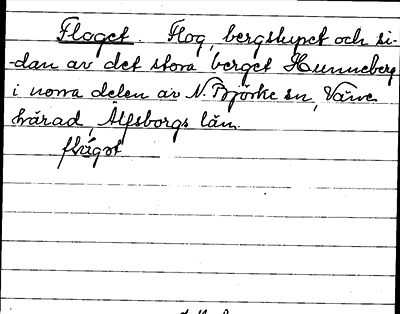 Floget. Flog, bergstupet och si-
-dan av det stora berget Hunneberg
i norra delen av N. Björke sn, Väne
härad, Älfsborgs län.